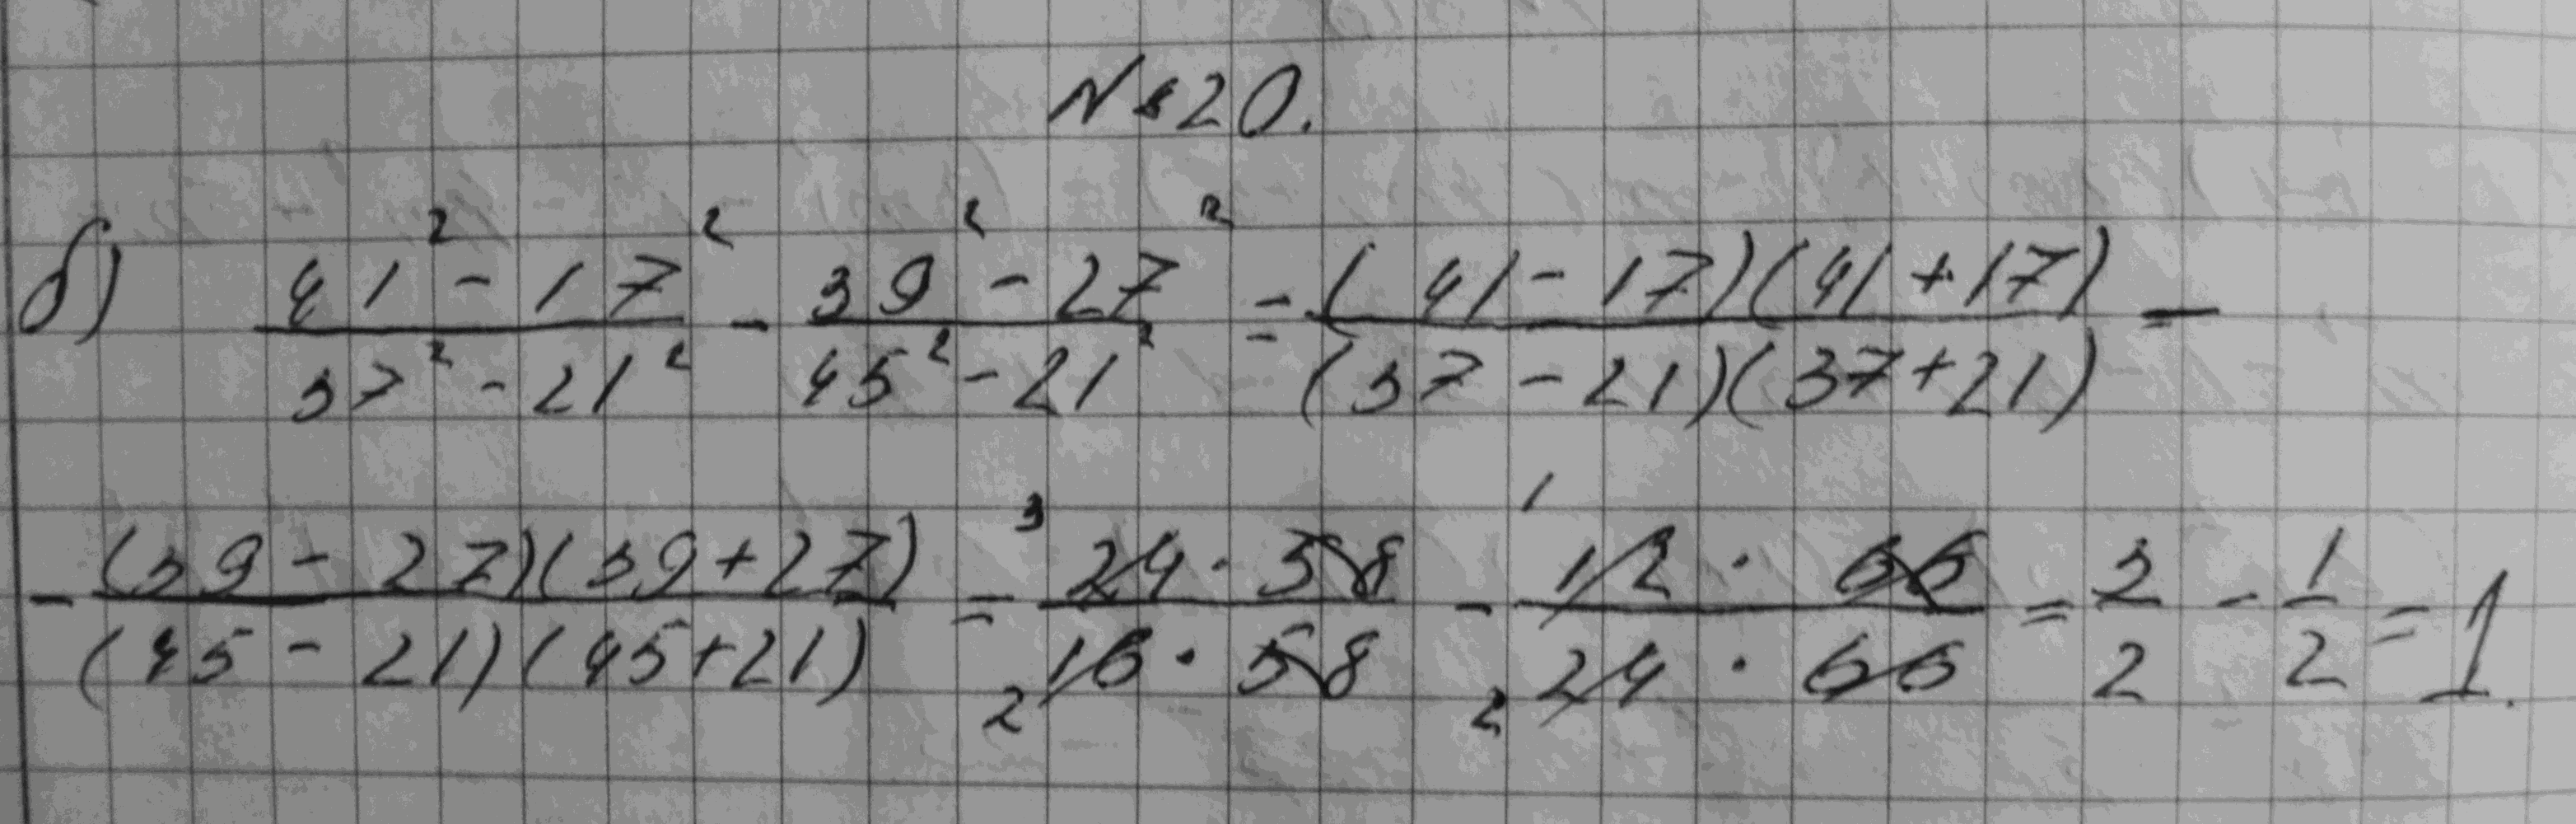 № 20.
б) (41² - 17²)/(37² - 21²) - (39² - 27²)/(45² - 21²) = ((41 - 17)(41 + 17))/((37 - 21)(37 + 21)) -
- ((39 - 27)(39 + 27))/((45 - 21)(45 + 21)) = (³24 · 58)/(₂16 · 58) - (¹12 · 66)/(₂24 · 66) = 3/2 - 1/2 = 1.